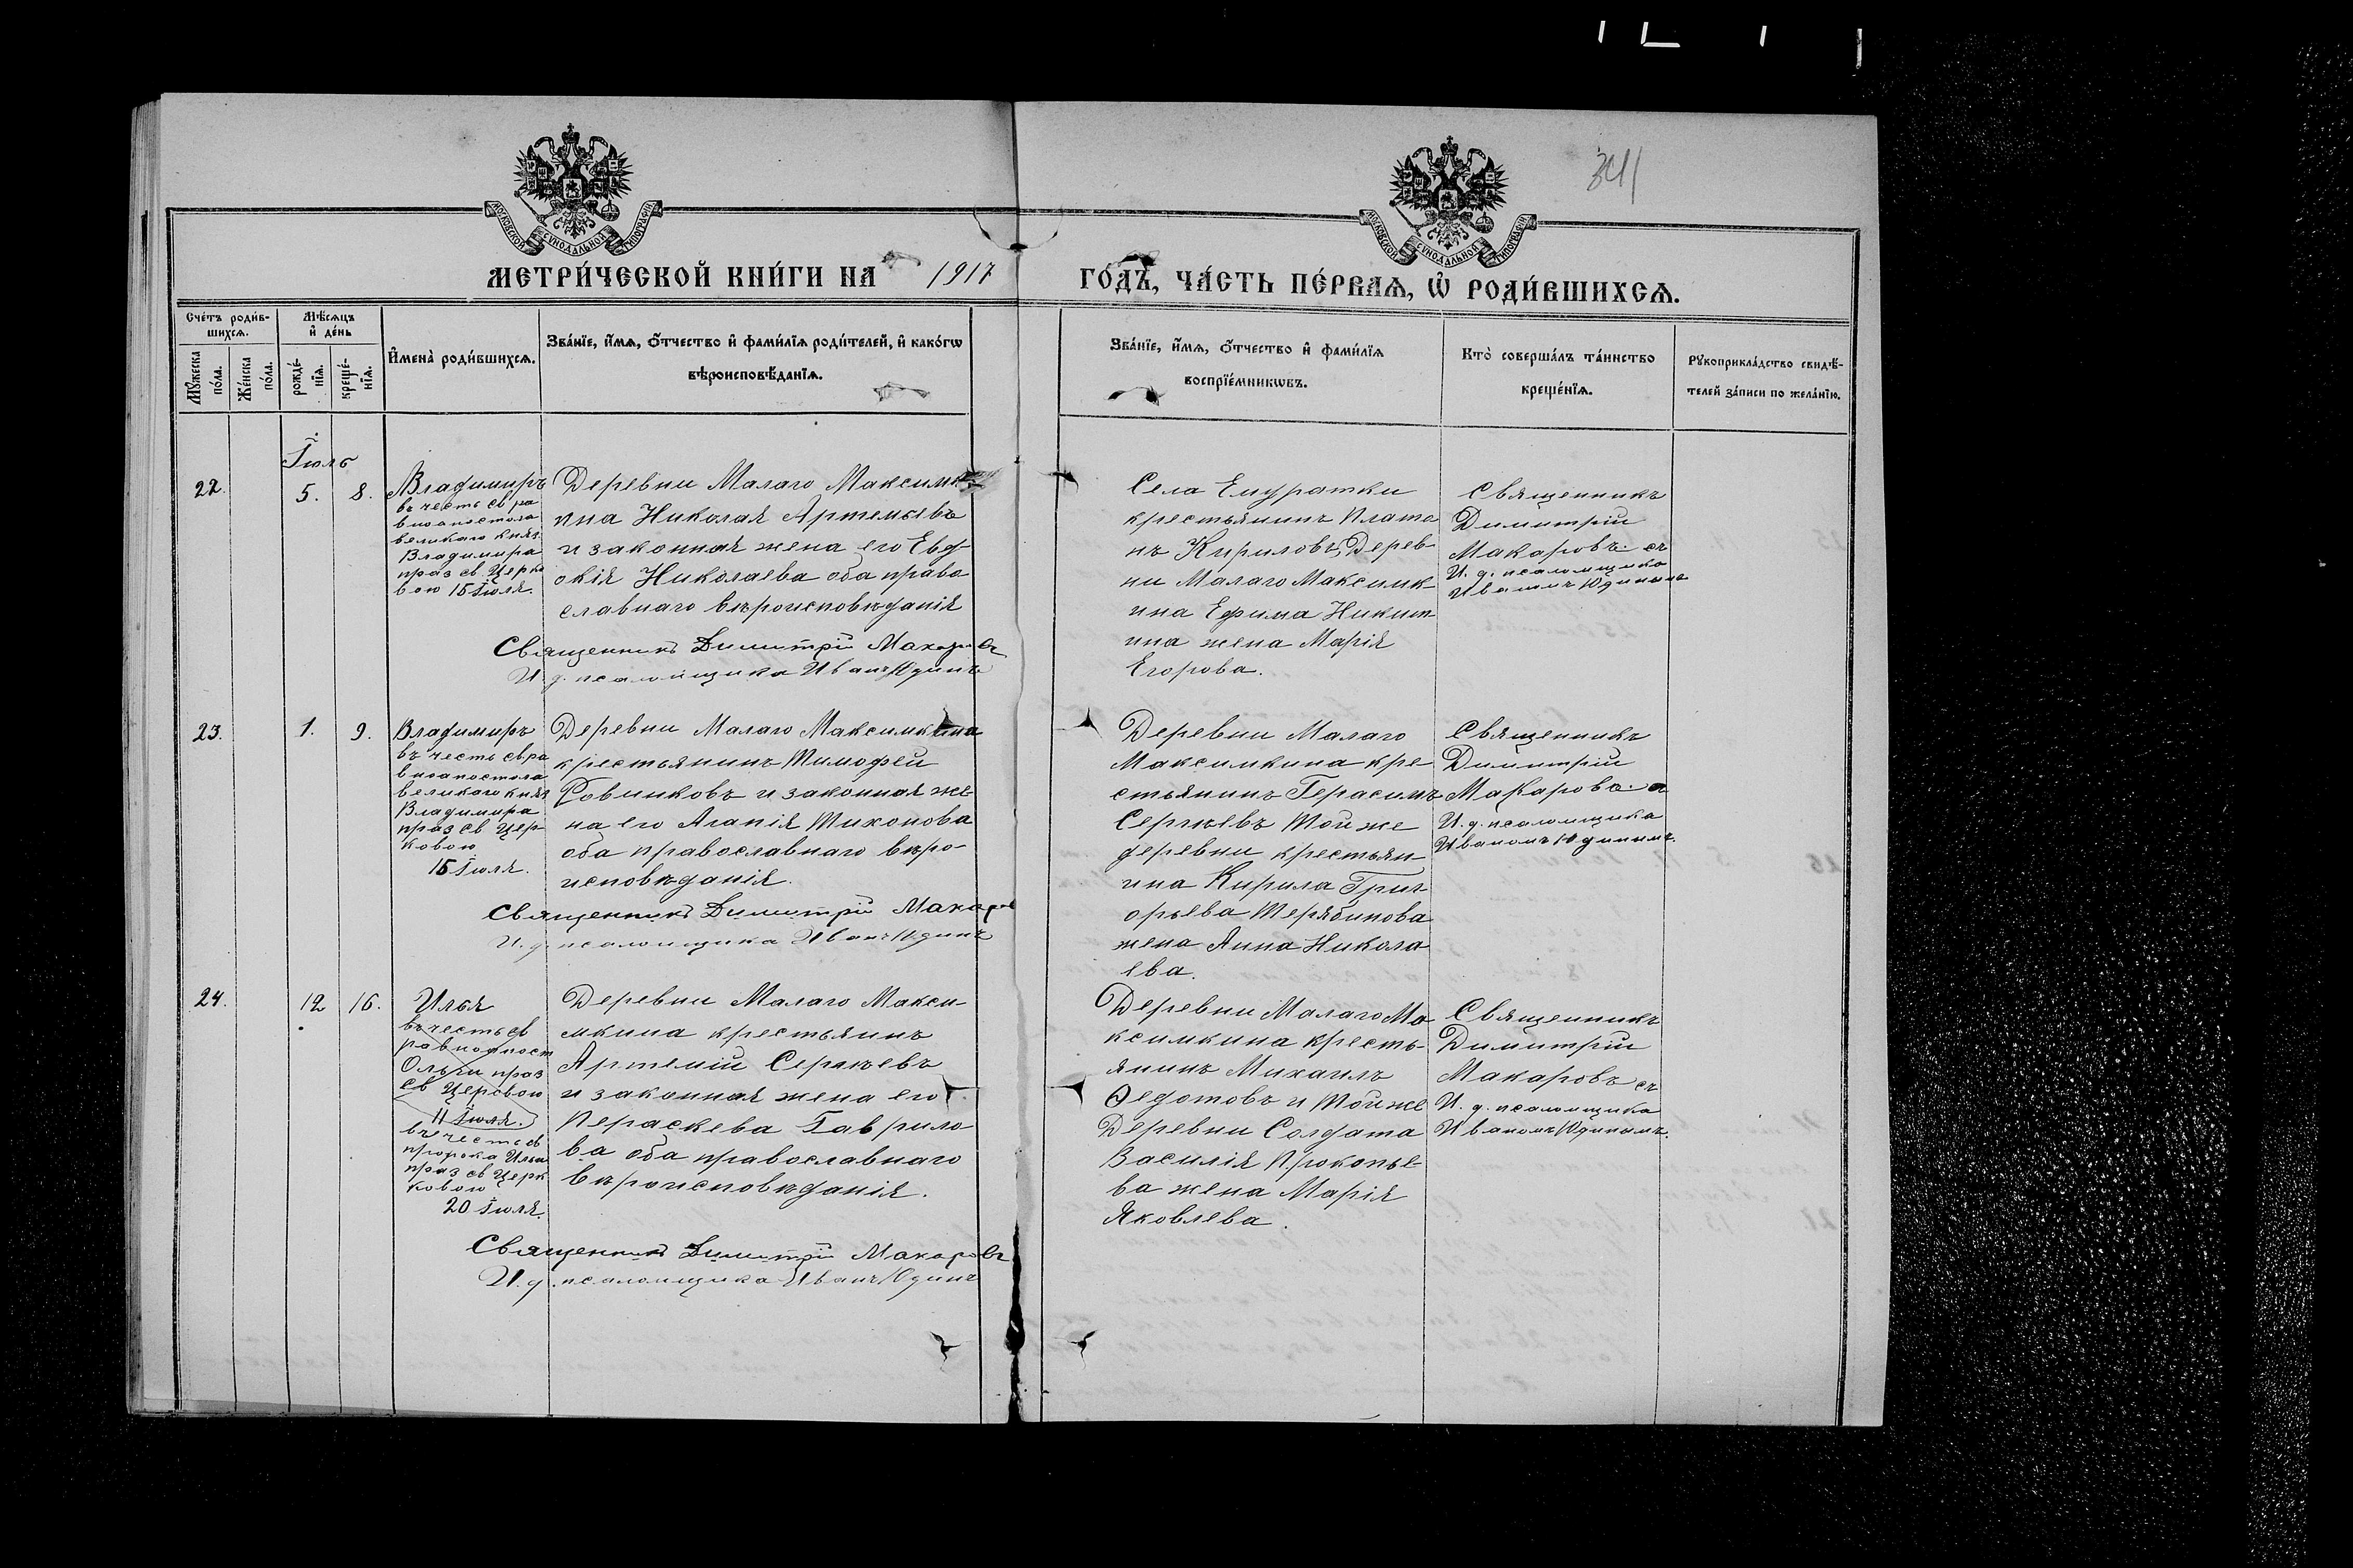 341
МОСКОВСКОЙ СѴНОДАЛЬНОЙ ТИПОГРАФІИ
МОСКОВСКОЙ СѴНОДАЛЬНОЙ ТИПОГРАФІИ
МЕТРИ́ЧЕСКОЙ КНИ́ГИ НА 1917 ГО́ДЪ, ЧА́СТЬ ПЕ́РВАѦ, Ѡ҆ РОДИ́ВШИХСѦ.
Сче́тъ роди́в-
шихсѧ.
Мꙋ́жеска
по́ла.
Же́нска
по́ла.
Мѣ́сѧцъ
и҆ де́нь
рожде́-
нїѧ.
креще́-
нїѧ.
И҆мена̀ роди́вшихсѧ.
Зва́нїе, и҆́мѧ, ѻ҆́тчество и҆ фами́лїѧ роди́телей, и҆ како́гѡ
вѣроисповѣ́данїѧ.
Зва́нїе, и҆́мѧ, ѻ҆́тчество и҆ фами́лїѧ
воспрїе́мникѡвъ.
Кто̀ соверша́лъ та́инство
креще́нїѧ.
Рꙋкоприкла́дство свидѣ́-
телей за́писи по жела́нїю.
Іюль
22.
5.
8.
Владимиръ
въ честь св ра
вноапостола
великаго князя
Владимира
праз св. Церко
вою 15 Іюля.
Деревни Малаго Максимк
ина Николая Артемьевъ
и законная жена его Евд-
окія Николаева оба право
славнаго вѣроисповѣданія
Священникъ Димитрій Макаровъ
И. д. псаломщика Иванъ Юдинъ
Села
крестьянинъ Плато
нъ Кириловъ, Дерев-
ни Малаго Максимк-
ина Ефима Никит-
ина жена Марія
Егорова.
Священникъ
Димитрій
Макаровъ съ
И. д. псаломщика
Иваномъ Юдинымъ
23.
1.
9.
Владимиръ
въ честь св ра
вноапостола
великаго князя
Владимира
праз св Цер
ковою
15 Іюля.
Деревни Малаго Максимкина
крестьянинъ Тимофей
Ровинковъ и законная же-
на его Агапія Тихонова
оба православнаго вѣро-
исповѣданія.
Священникъ Димитрій Макаровъ
И. д. псаломщика Иванъ Юдинъ
Деревни Малаго
Максимкина кре-
стьянинъ Герасимъ
Сергѣевъ Той же
деревни крестьян-
ина Кирила Григ-
орьева Терябинова
жена Анна Никола
ева.
Священникъ
Димитрій
Макаровъ съ
И. д. псаломщика
Иваномъ Юдинымъ.
24.
12
16.
Илья
въ честь св
равноапост
Ольги праз
св Церковою
11 Іюля.
въ честь св
пророка Ильи
праз св Церк
ковою
20 Іюля.
Деревни Малаго Макси-
мкина крестьянинъ
Артемій Сергѣевъ
и законная жена его
Пераскева Гаврило
ва оба православнаго
вѣроисповѣданія.
Священникъ Димитрій Макаровъ
И. д. псаломщика Иванъ Юдинъ
Деревни Малаго Ма
ксимкина кресть-
янинъ Михаилъ
Ѳедотовъ и Той же
Деревни Солдата
Василія Прокопье-
ва жена Марія
Яковлева.
Священникъ
Димитрій
Макаровъ съ
И. д. псаломщика
Иваномъ Юдинымъ.